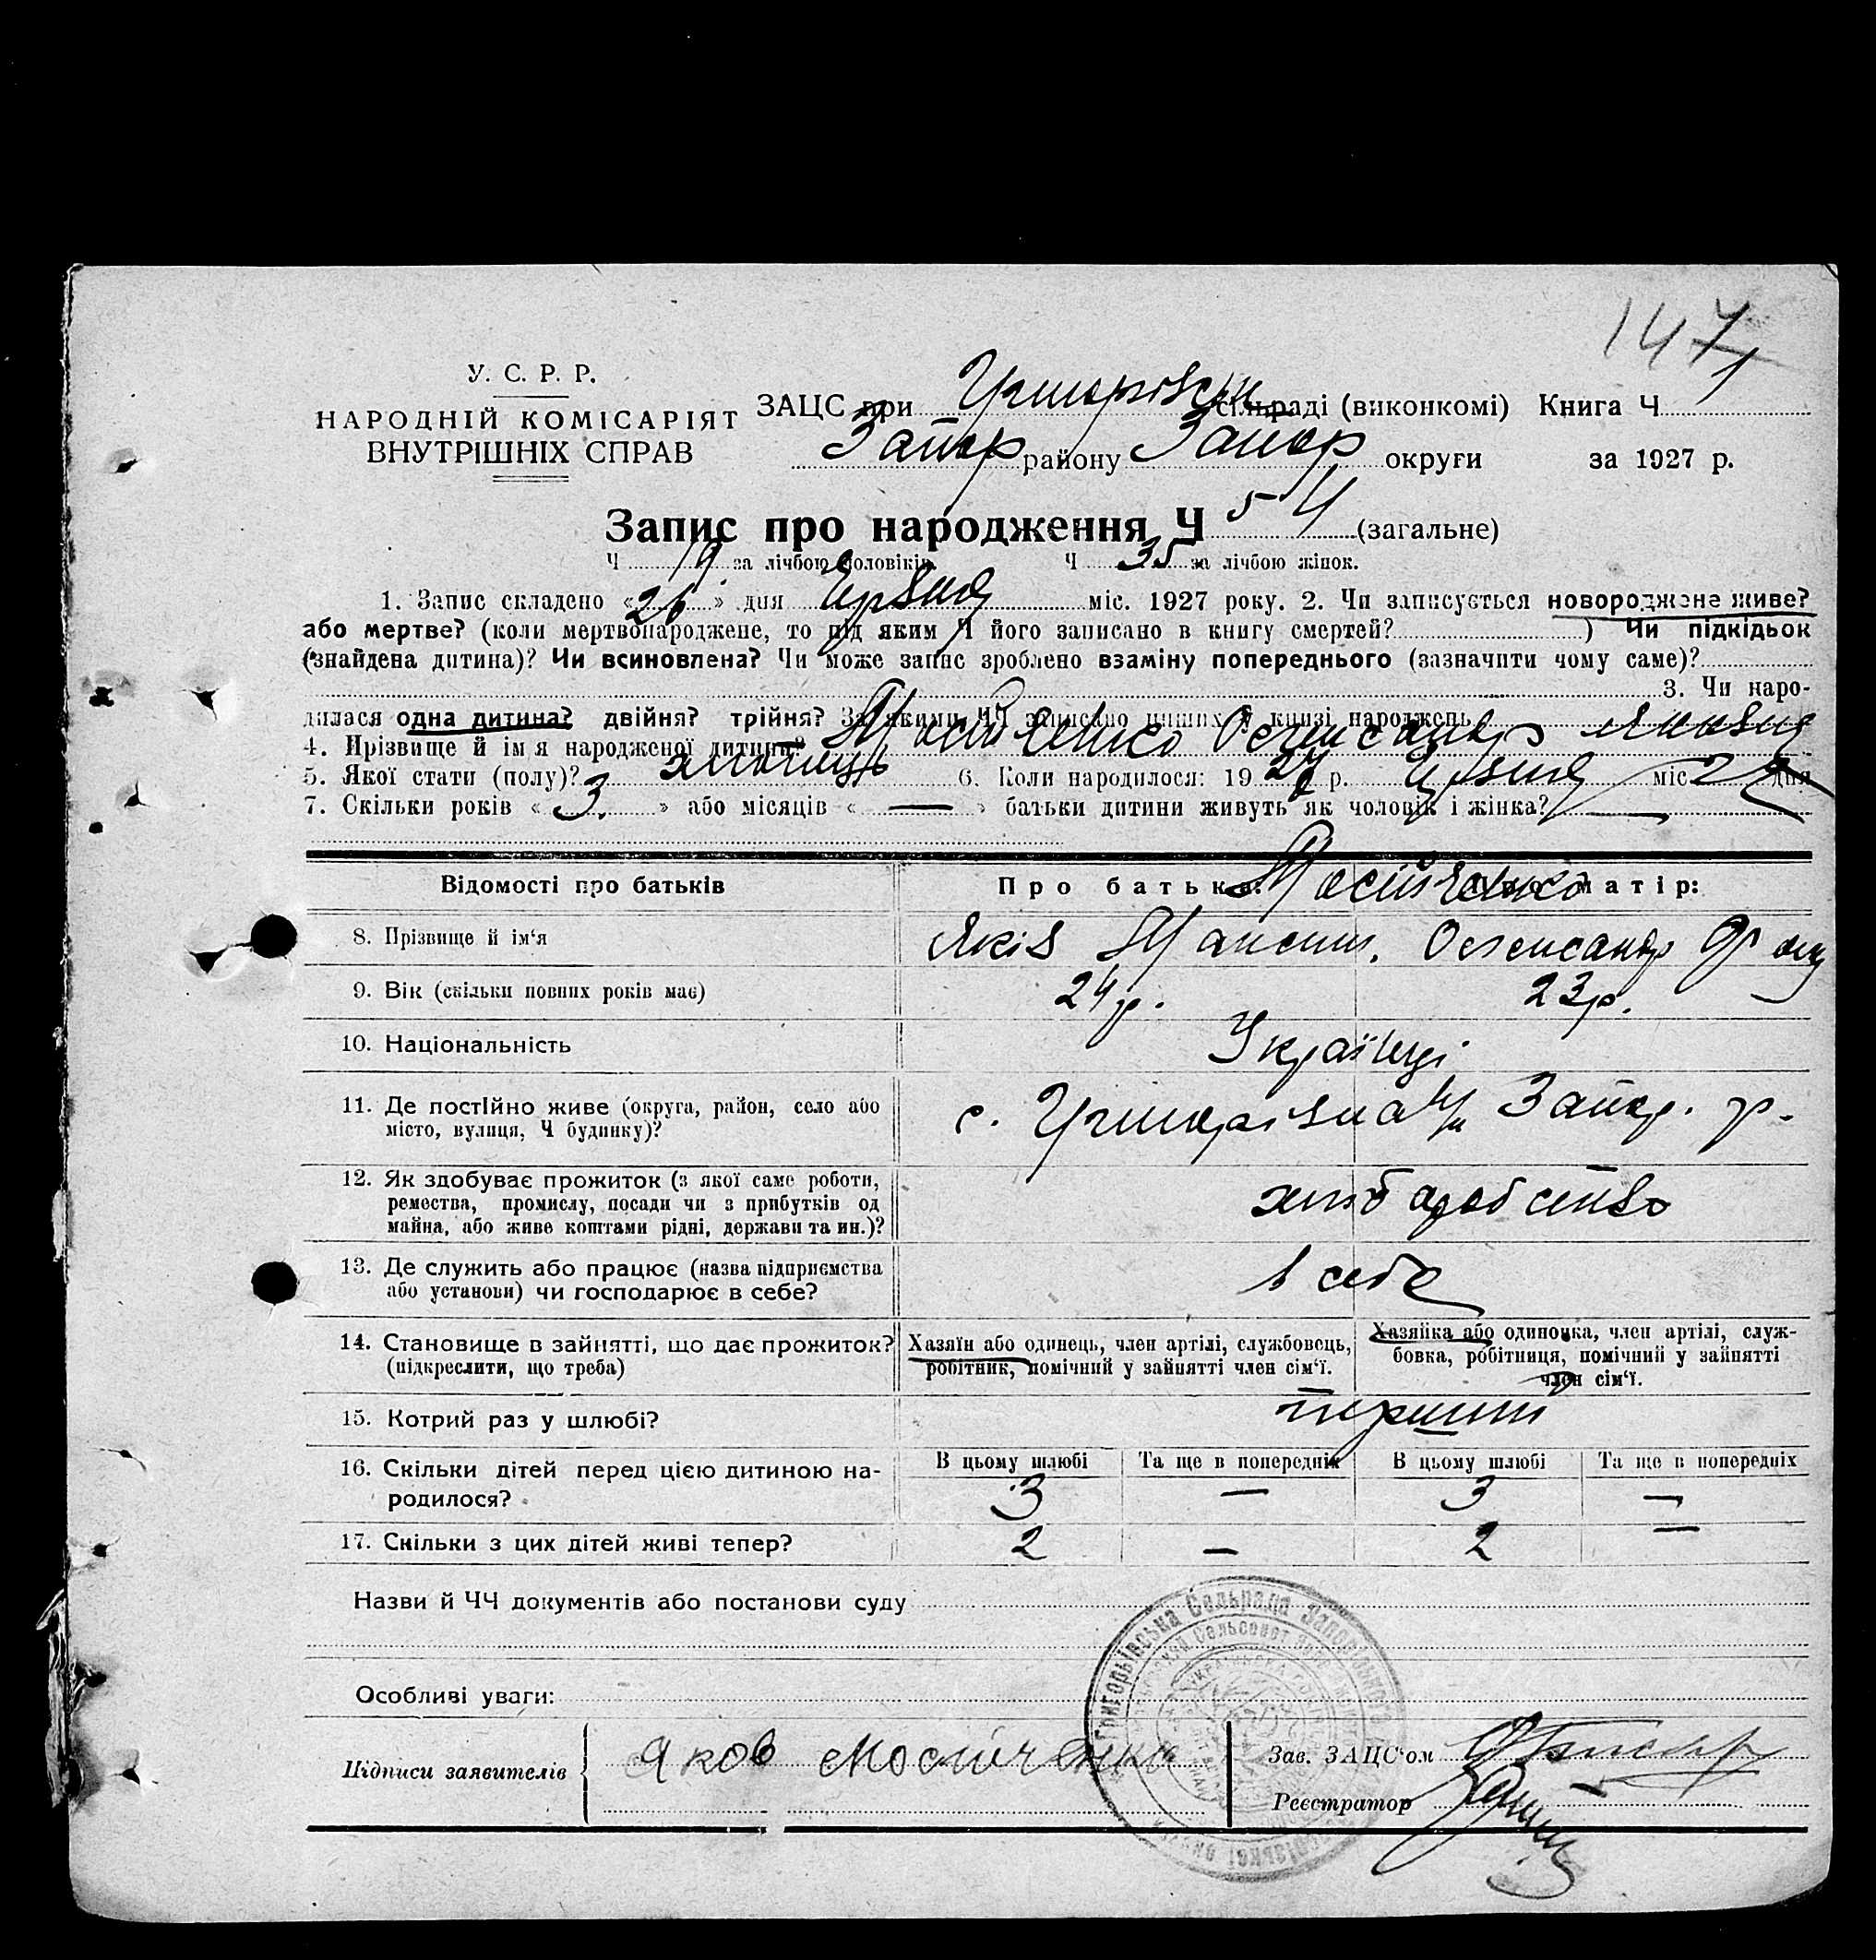 147
У. С. Р. Р.
НАРОДНІЙ КОМІСАРІЯТ
ВНУТРІШНІХ СПРАВ
ЗАЦС при сільраді (виконкомі) Книга Ч 1
Запор району Запор округи за 1927 р.
Запис про народження Ч 54 (загальне)
Ч 19 за лічбою чоловіків. Ч 35 за лічбою жінок.
1. Запис складено «26» дня Червня міс. 1927 року. 2. Чи записується новороджене живе?
або мертве? (коли мертвонароджене, то під яким Ч його записано в книгу смертей? ) Чи підкідьок
(знайдена дитина)? Чи всиновлена? Чи може запис зроблено взаміну попереднього (зазначити чому саме)?
3. Чи наро-
дилася одна дитина? двійня? трійня? За якими ЧЧ записано инших в книзі народжень
4. Прізвище й ім'я народженої дитини? Мосійченко Олександр Якович
5. Якої стати (полу)? хлопець 6. Коли народилося: 1927 р. Червня міс. дня
7. Скільки років «3» або місяців «—» батьки дитини живуть як чоловік і жінка?
Відомості про батьків Про батька: Про матір:
Мосійченко
8. Прізвище й ім'я Яків Олександр
9. Вік (скільки повних років має) 24 р. 23 р.
10. Національність Українці
11. Де постійно живе (округа, район, село або с. Григорівка Запор. р.
місто, вулиця, Ч будинку)?
12. Як здобуває прожиток (з якої саме роботи,
ремества, промислу, посади чи з прибутків од хліборобство
майна, або живе коштами рідні, держави та ин.)?
13. Де служить або працює (назва підприємства в себе
або установи) чи господарює в себе?
14. Становище в зайнятті, що дає прожиток? Хазяїн або одинець, член артілі, службовець, Хазяйка або одиночка, член артілі, служ-
(підкреслити, що треба) робітник, помічний у зайнятті член сім'ї. бовка, робітниця, помічний у зайнятті
член сім'ї.
15. Котрий раз у шлюбі? перший
16. Скільки дітей перед цією дитиною на- В цьому шлюбі Та ще в попередніх В цьому шлюбі Та ще в попередніх
родилося? 3 — 3 —
17. Скільки з цих дітей живі тепер? 2 — 2 —
Назви й ЧЧ документів або постанови суду
Григорьівська Сельрада
Особливі уваги:
Підписи заявителів Яков Мосійченко Зав. ЗАЦС'ом
Реєстратор